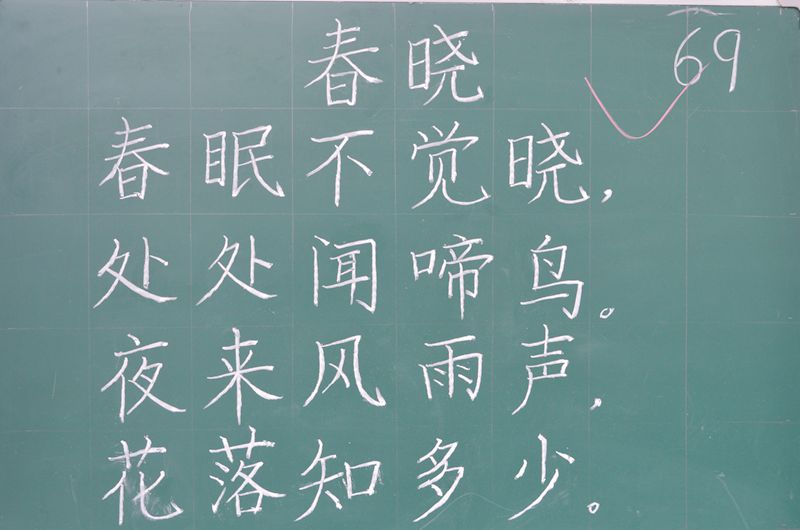 春晓 69
春眠不觉晓，
处处闻啼鸟。
夜来风雨声，
花落知多少。